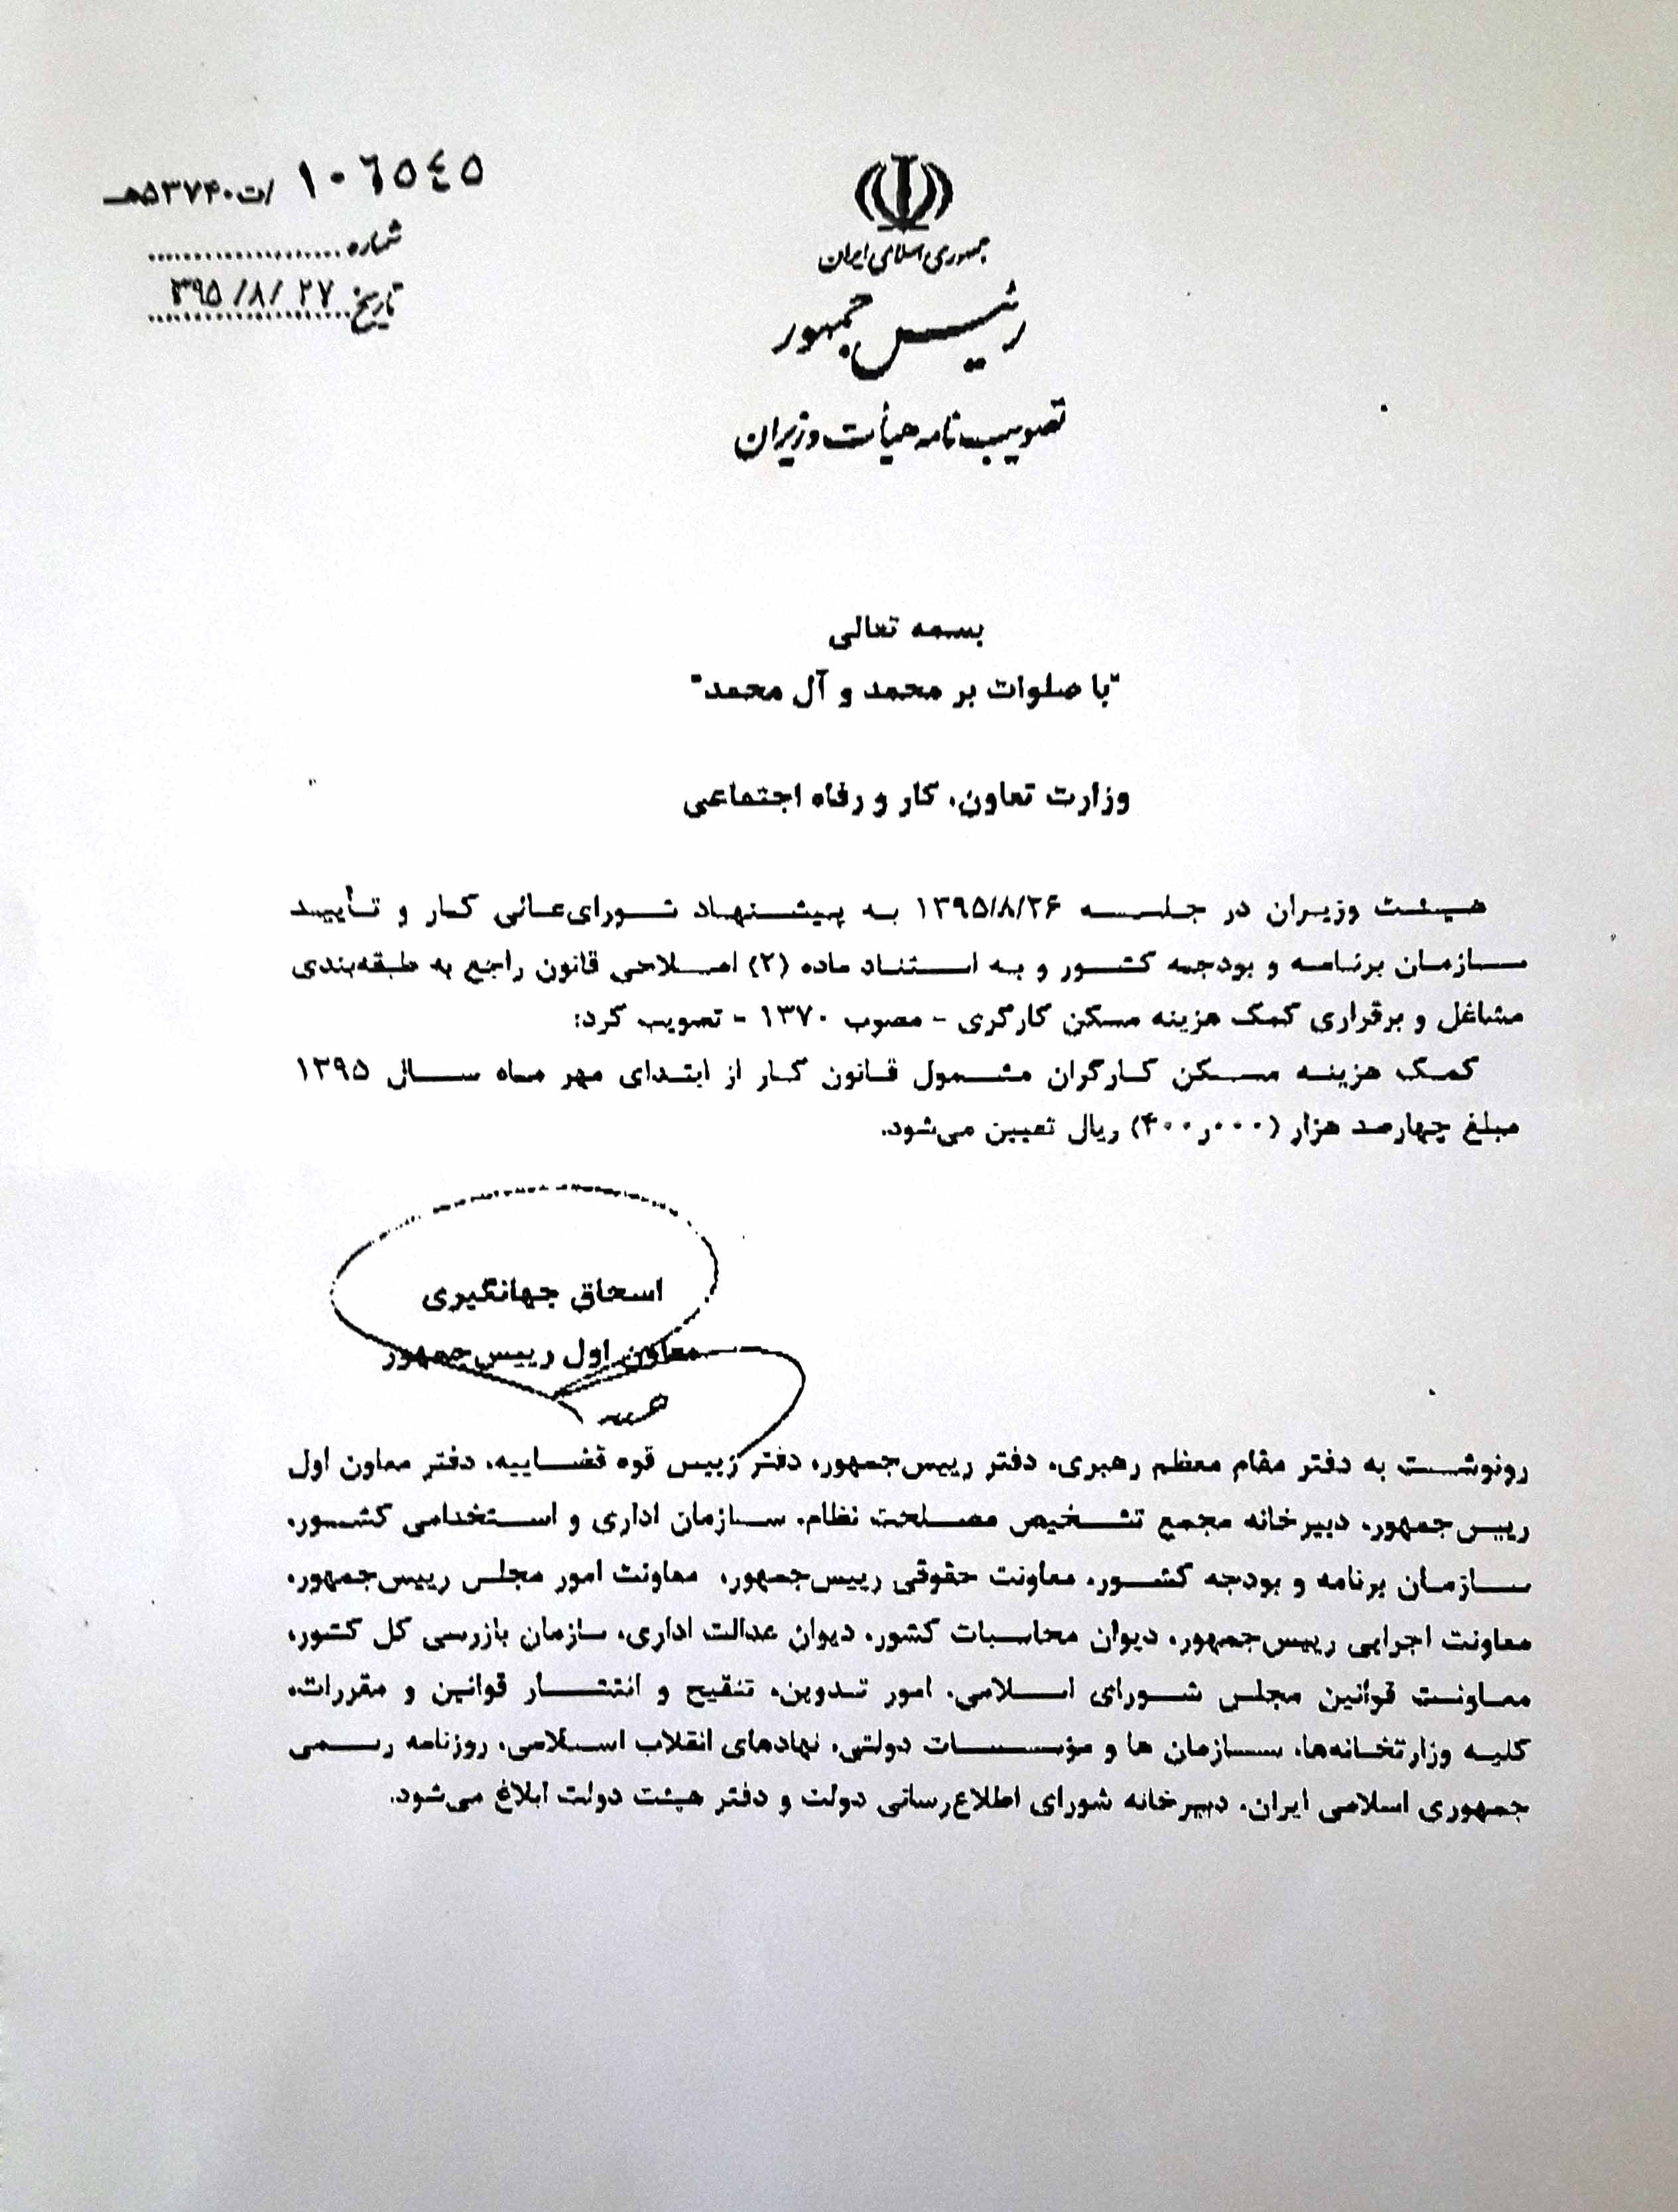 ۱۰۶۵۴۵ /ت۵۳۷۴۰هـ
شماره
تاریخ ۳۹۵/۸/۲۷
جمهوری اسلامی ایران
رئیس جمهور
تصویب نامه هیأت وزیران
بسمه تعالی
"با صلوات بر محمد و آل محمد"
وزارت تعاون، کار و رفاه اجتماعی
هیئت وزیران در جلسه ۱۳۹۵/۸/۲۶ به پیشنهاد شورای‌عالی کار و تأیید
سازمان برنامه و بودجه کشور و به استناد ماده (۲) اصلاحی قانون راجع به طبقه‌بندی
مشاغل و برقراری کمک هزینه مسکن کارگری - مصوب ۱۳۷۰ - تصویب کرد:
کمک هزینه مسکن کارگران مشمول قانون کار از ابتدای مهر ماه سال ۱۳۹۵
مبلغ چهارصد هزار (۴۰۰ر۰۰۰) ریال تعیین می‌شود.
اسحاق جهانگیری
معاون اول رییس‌جمهور
رونوشت به دفتر مقام معظم رهبری، دفتر رییس‌جمهور، دفتر رییس قوه قضاییه، دفتر معاون اول
رییس‌جمهور، دبیرخانه مجمع تشخیص مصلحت نظام، سازمان اداری و استخدامی کشور،
سازمان برنامه و بودجه کشور، معاونت حقوقی رییس‌جمهور، معاونت امور مجلس رییس‌جمهور،
معاونت اجرایی رییس‌جمهور، دیوان محاسبات کشور، دیوان عدالت اداری، سازمان بازرسی کل کشور،
معاونت قوانین مجلس شورای اسلامی، امور تدوین، تنقیح و انتشار قوانین و مقررات،
کلیه وزارتخانه‌ها، سازمان ها و مؤسسات دولتی، نهادهای انقلاب اسلامی، روزنامه رسمی
جمهوری اسلامی ایران، دبیرخانه شورای اطلاع‌رسانی دولت و دفتر هیئت دولت ابلاغ می‌شود.